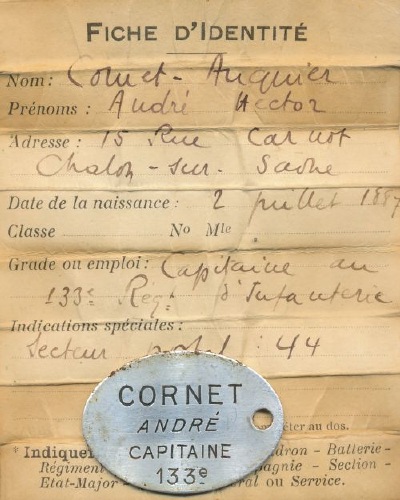 FICHE D'IDENTITÉ
Nom: Cornet - Auquier
Prénoms: André Hector
Adresse: 15 Rue Carnot
Chalon - sur - Saône
Date de la naissance: 2 juillet 1887
Classe No Mle
Grade ou emploi: Capitaine au
133e Regt d'Infanterie
Indications spéciales:
Secteur postal: 44
CORNET
ANDRÉ
CAPITAINE
133e
éter au dos.
* Indiquer dron - Batterie -
Régiment pagnie - Section -
Etat-Major ral ou Service.